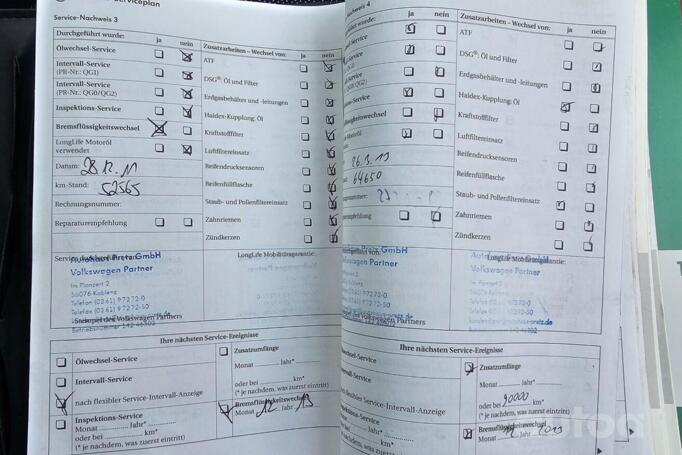 Serviceplan
Service-Nachweis 3
Durchgeführt wurde: ja nein
Ölwechsel-Service
Intervall-Service
(PR-Nr.: QG1)
Intervall-Service
(PR-Nr.: QG0/QG2)
Inspektions-Service
Bremsflüssigkeitswechsel
LongLife Motoröl
verwendet
Datum: 28.12.11
km-Stand: 52565
Rechnungsnummer:
Reparaturempfehlung
Zusatzarbeiten – Wechsel von: ja nein
ATF
DSG®: Öl und Filter
Erdgasbehälter und -leitungen
Haldex-Kupplung: Öl
Kraftstofffilter
Luftfiltereinsatz
Reifendrucksensoren
Reifenfüllflasche
Staub- und Pollenfiltereinsatz
Zahnriemen
Zündkerzen
Autohaus Pretz GmbH
Volkswagen Partner
Im Planzert 2
56076 Koblenz
Telefon (02 61) 9 73 72-0
Telefax (02 61) 9 73 72-50
Stempel des Volkswagen Partners
LongLife Mobilitätsgarantie:
Ihre nächsten Service-Ereignisse
Ölwechsel-Service
Intervall-Service
nach flexibler Service-Intervall-Anzeige
Inspektions-Service
Monat Jahr*
oder bei km*
(* je nachdem, was zuerst eintritt)
Zusatzumfänge
Monat Jahr*
oder bei km*
(* je nachdem, was zuerst eintritt)
Bremsflüssigkeitswechsel
Monat 12 Jahr 13
-Nachweis 4
wurde: ja nein
-Service
QG1)
-Service
QG0/QG2)
-Service
keitswechsel
Motoröl
26.3.13
64650
nummer:
empfehlung
Zusatzarbeiten – Wechsel von: ja nein
ATF
DSG®: Öl und Filter
Erdgasbehälter und -leitungen
Haldex-Kupplung: Öl
Kraftstofffilter
Luftfiltereinsatz
Reifendrucksensoren
Reifenfüllflasche
Staub- und Pollenfiltereinsatz
Zahnriemen
Zündkerzen
GmbH
Volkswagen Partner
Volkswagen Partners
Ihre nächsten Service-Ereignisse
Ölwechsel-Service
Intervall-Service
nach flexibler Service-Intervall-Anzeige
Inspektions-Service
Monat Jahr*
oder bei km*
(* je nachdem, was zuerst eintritt)
Zusatzumfänge
Monat Jahr*
oder bei 90000 km*
(* je nachdem, was zuerst eintritt)
Bremsflüssigkeitswechsel
Monat Jahr 2013